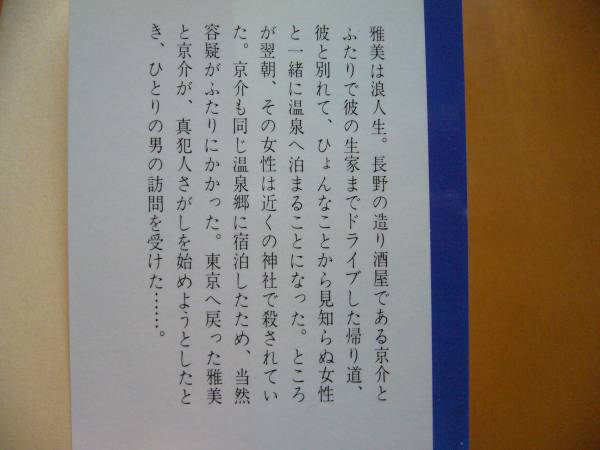 雅美は浪人生。長野の造り酒屋である京介と
ふたりで彼の生家までドライブした帰り道、
彼と別れて、ひょんなことから見知らぬ女性
と一緒に温泉へ泊まることになった。ところ
が翌朝、その女性は近くの神社で殺されてい
た。京介も同じ温泉郷に宿泊したため、当然
容疑がふたりにかかった。東京へ戻った雅美
と京介が、真犯人さがしを始めようとしたと
き、ひとりの男の訪問を受けた……。